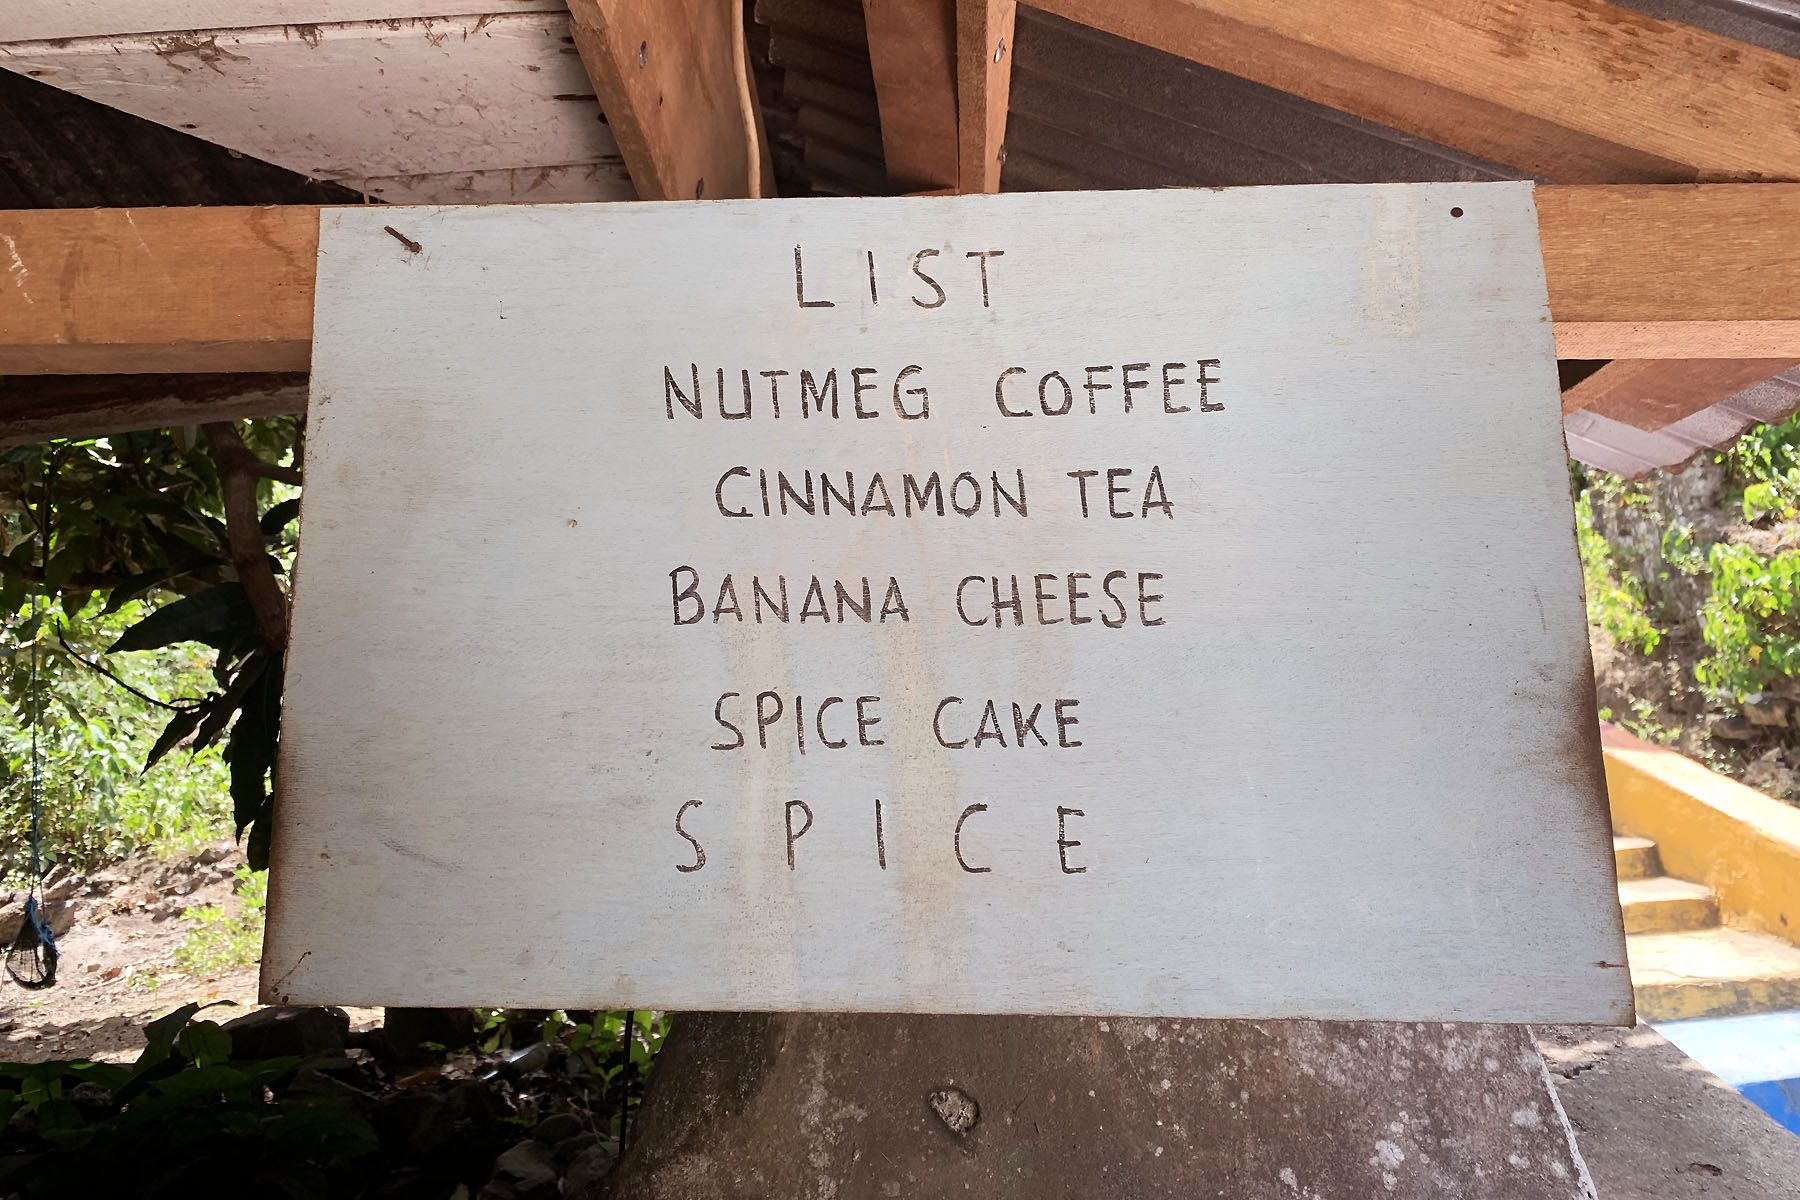 LIST
NUTMEG COFFEE
CINNAMON TEA
BANANA CHEESE
SPICE CAKE
SPICE